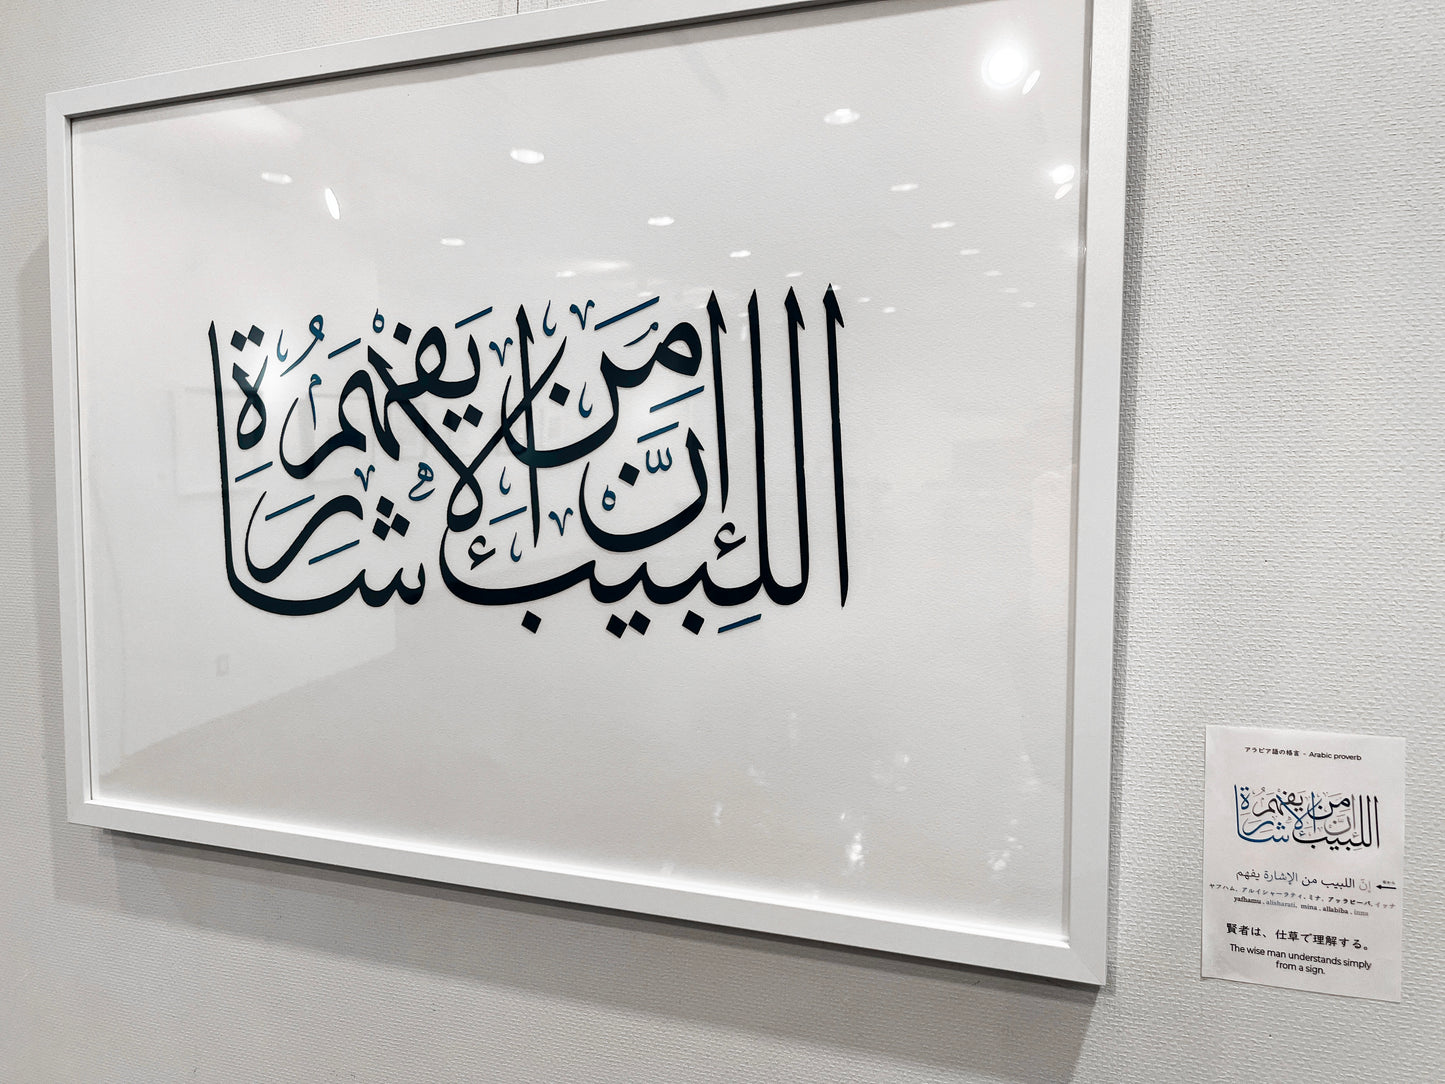 إنَّ اللبيبَ مِنَ الإشارَةِ يَفْهَمُ
アラビア語の格言 - Arabic proverb
إنَّ اللبيب من الإشارة يفهم
ヤフハム、アルイシャーラティ、ミナ、アッラビーバ、インナ
yafhamu , alisharati, mina , allabiba , inna
賢者は、仕草で理解する。
The wise man understands simply
from a sign.